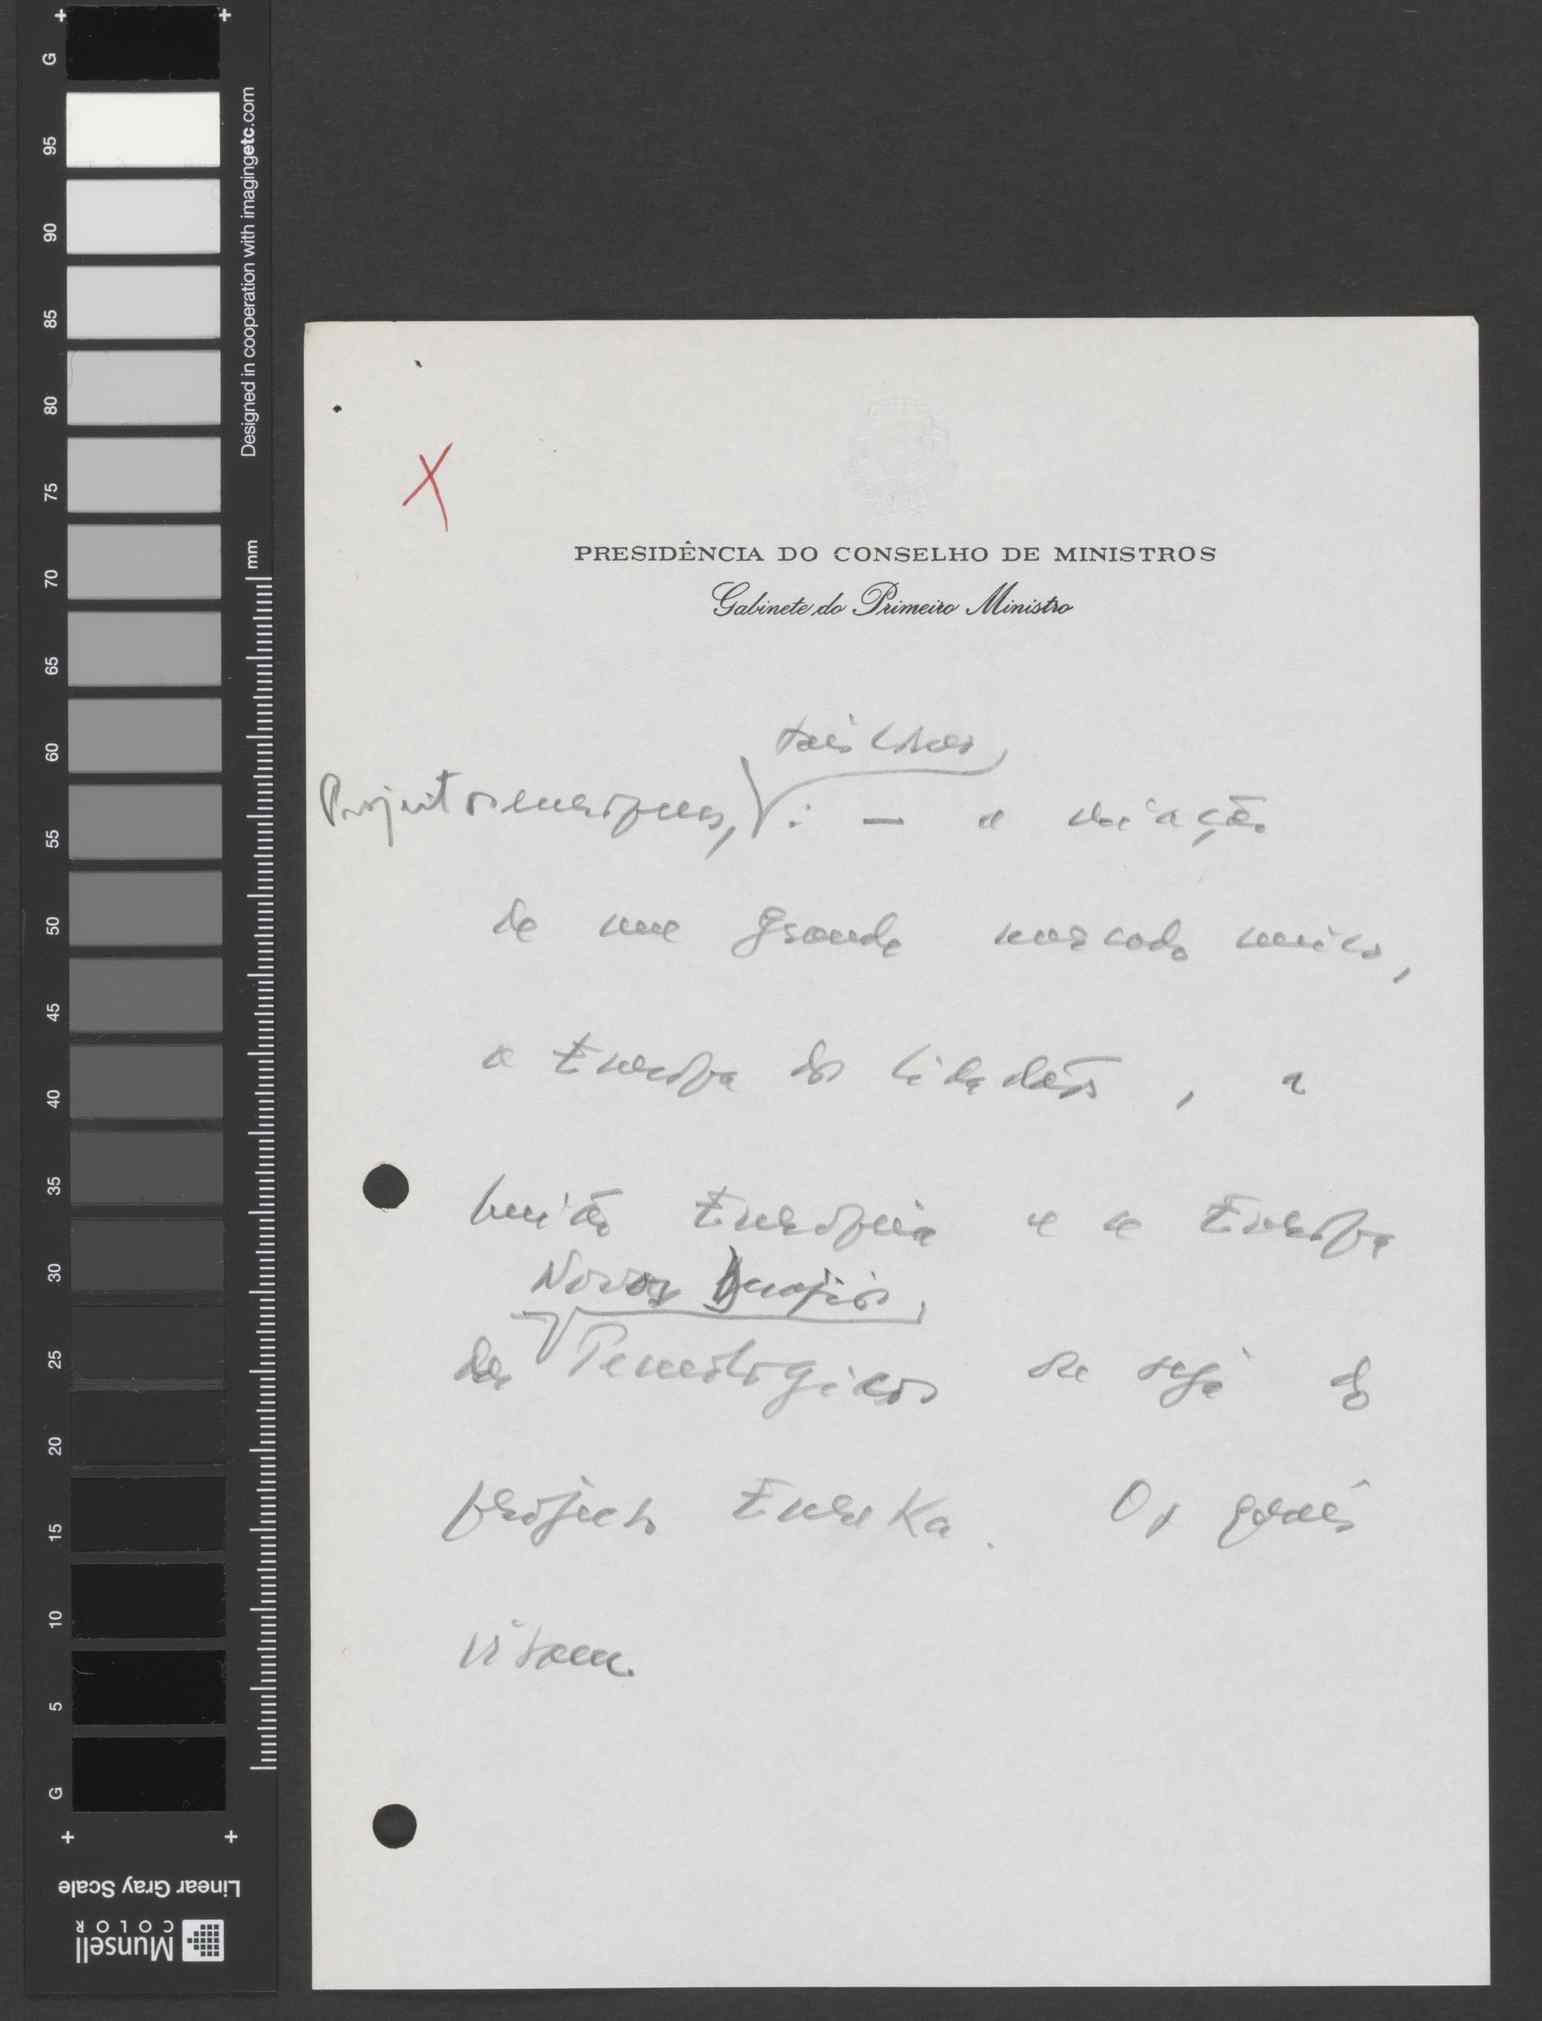 X
PRESIDÊNCIA DO CONSELHO DE MINISTROS
Gabinete do Primeiro Ministro
tais como,
Projectos europeus, : — a criação
de um grande mercado único,
a Europa dos Cidadãos, a
União Europeia e a Europa
Novos Desafios,
dos Tecnológicos ou seja do
projecto Eureka. Os quais
visam
G
95
90
85
80
75
70
65
60
55
50
45
40
35
30
25
20
15
10
5
G
Designed in cooperation with imagingetc.com
mm
Linear Gray Scale
Munsell
COLOR